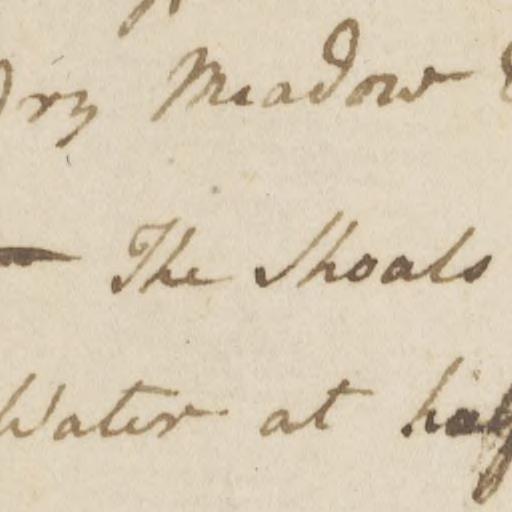 Dry Meadow
— The Shoals
Water at half